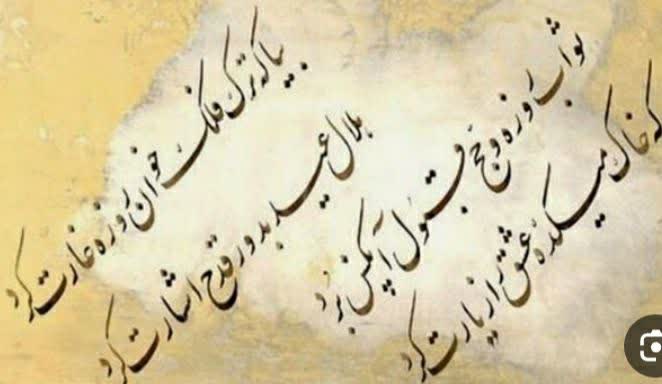 بیا که ترک فلک خوان روزه غارت کرد
هلال عید بدور قدح اشارت کرد
ثواب روزه و حج قبول آنکس برد
که خاک میکده عشق را زیارت کرد